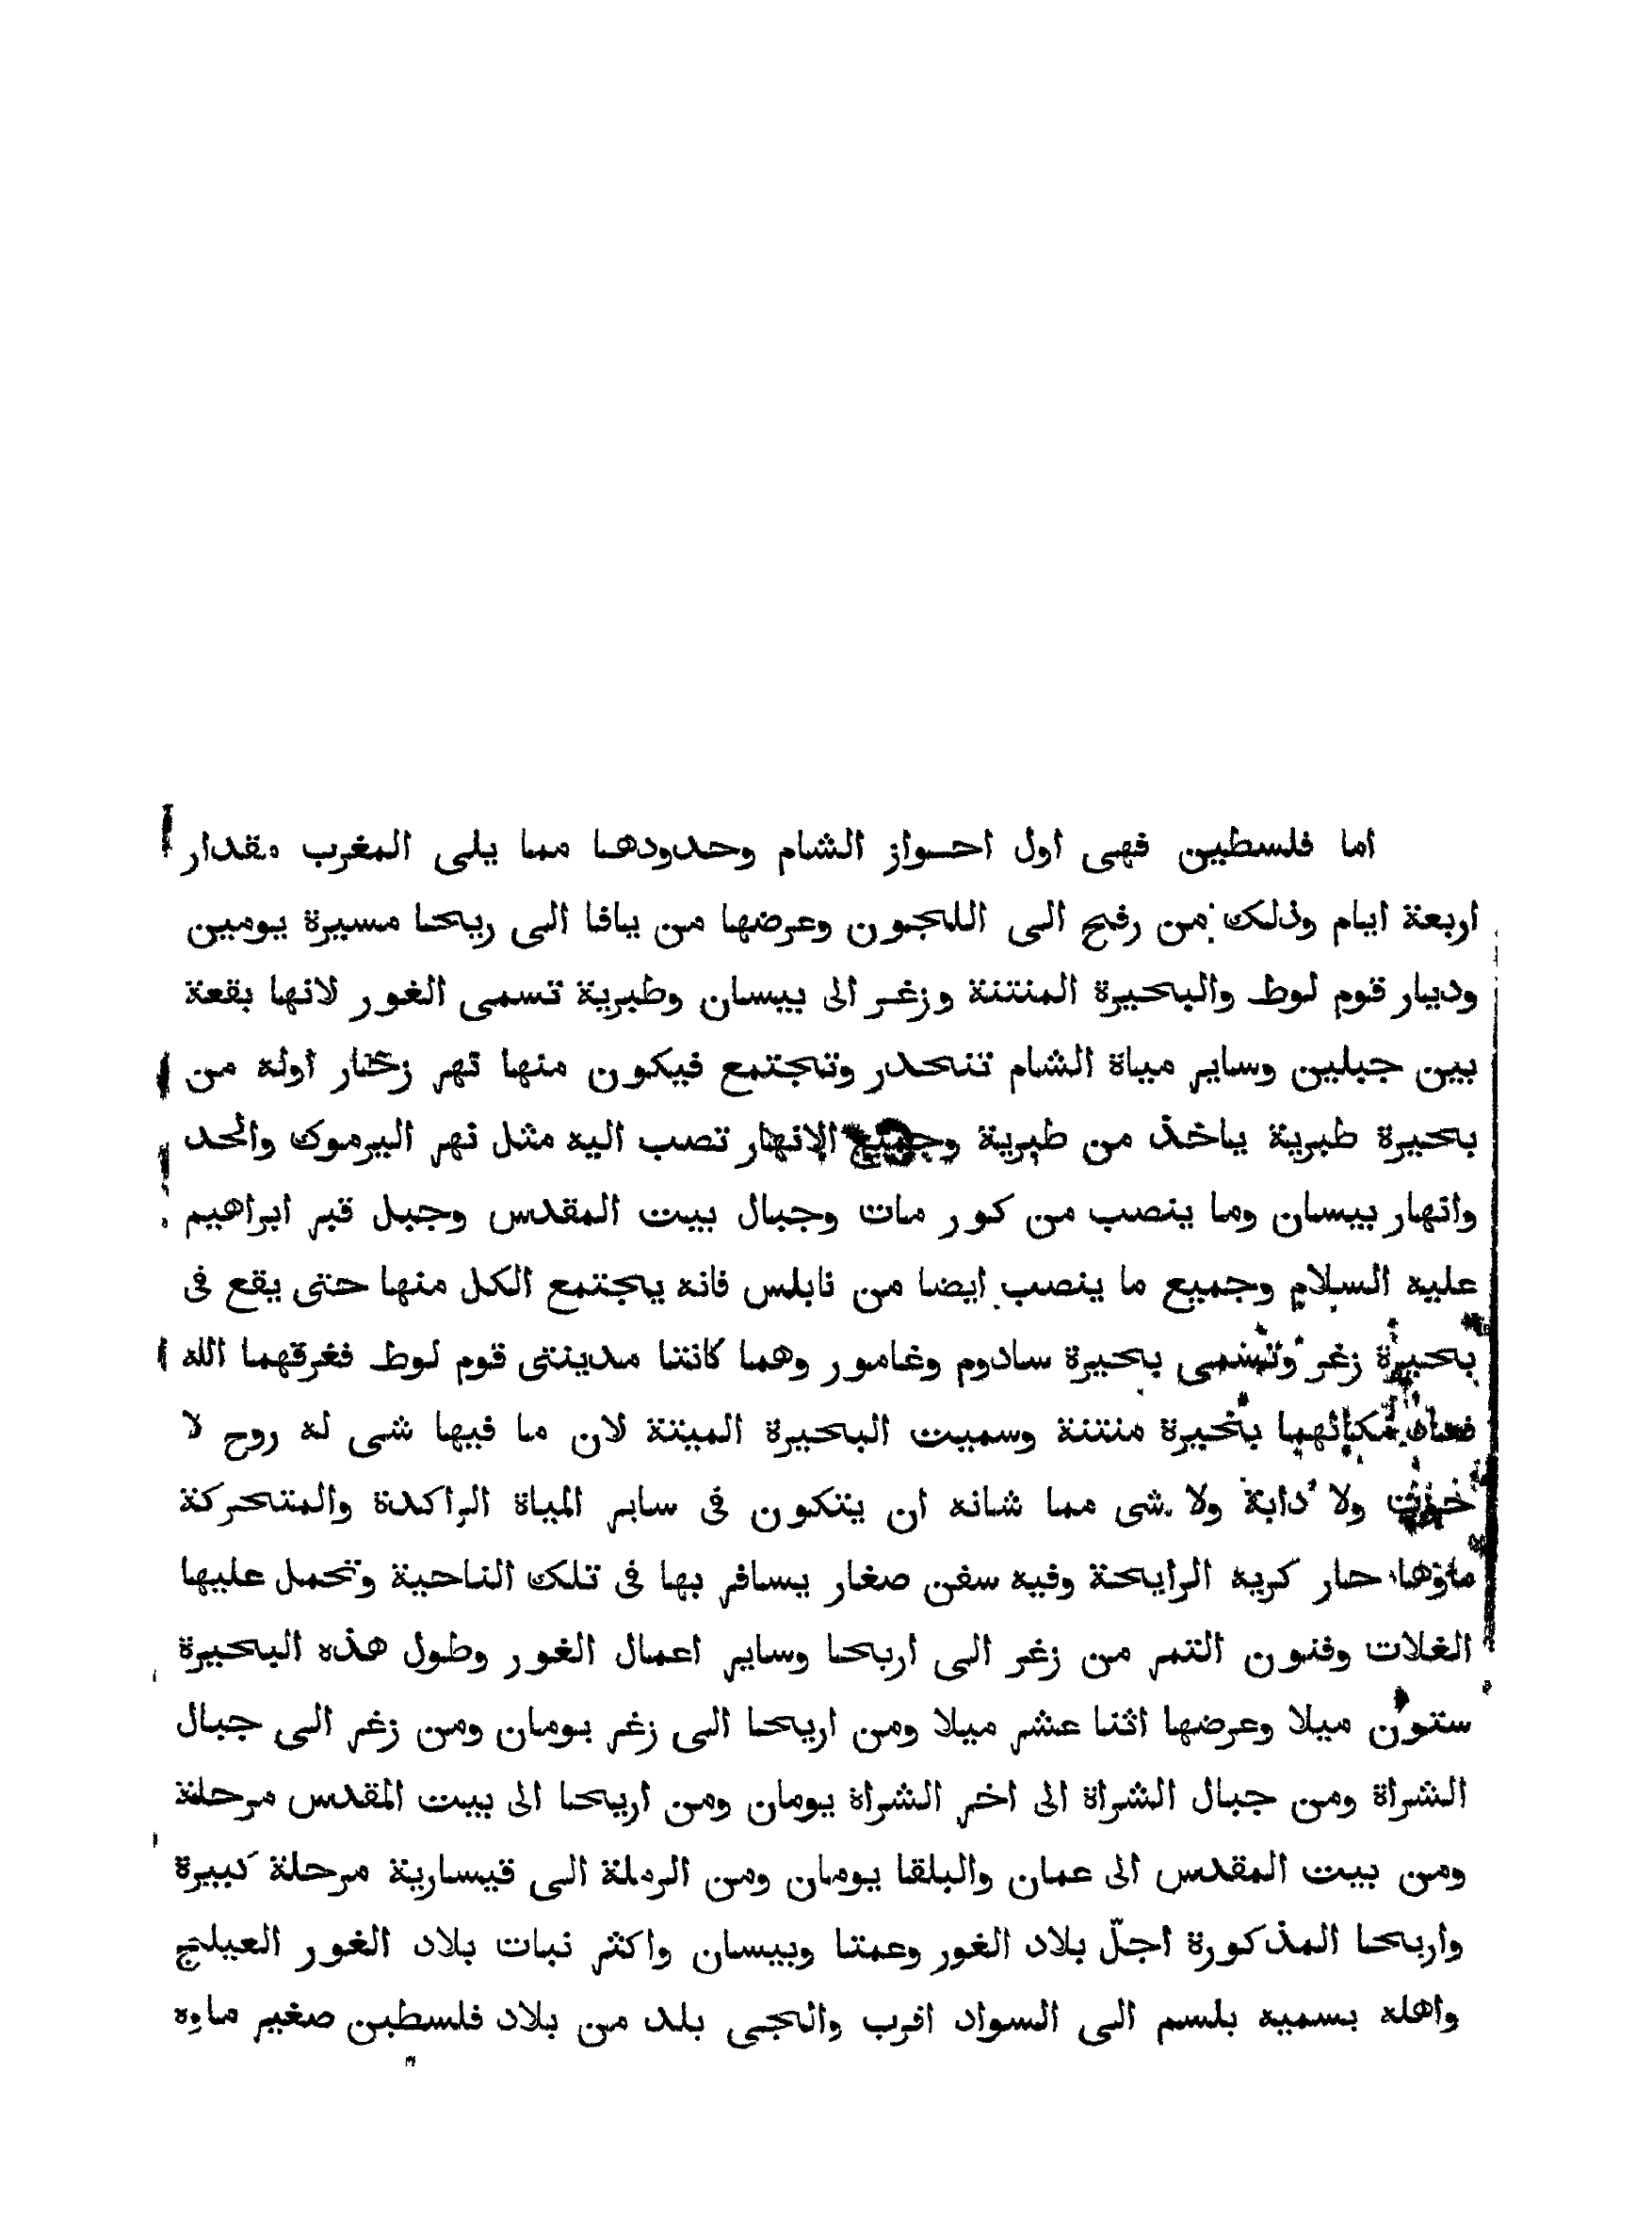 اما فلسطين فهى اول احواز الشام وحدودها مما يلى المغرب مقدار
اربعة ايام وذلك من رفح الى اللجون وعرضها من يافا الى ريحا مسيرة يومين
وديار قوم لوط والبحيرة المنتنة وزغر الى بيسان وطبرية تسمى الغور لانها بقعة
بين جبلين وساير مياة الشام تنحدر وتجتمع فيكون منها نهر زخار اوله من
بحيرة طبرية ياخذ من طبرية وجميع الانهار تصب اليه مثل نهر اليرموك والحد
وانهار بيسان وما ينصب من كور مات وجبال بيت المقدس وجبل قبر ابراهيم
عليه السلام وجميع ما ينصب ايضا من نابلس فانه يجتمع الكل منها حتى يقع فى
بحيرة زغر وتسمى بحيرة سادوم وغامور وهما كانتا مدينتى قوم لوط فغرقهما الله
فعاد مكانهما بحيرة منتنة وسميت البحيرة الميتة لان ما فيها شى له روح لا
حوت ولا دابة ولا شى مما شانه ان يتكون فى ساير المياة الراكدة والمتحركة
ماوها حار كريه الرايحة وفيه سفن صغار يسافر بها فى تلك الناحية وتحمل عليها
الغلات وفنون التمر من زغر الى اريحا وساير اعمال الغور وطول هذه البحيرة
ستون ميلا وعرضها اثنا عشر ميلا ومن اريحا الى زغر يومان ومن زغر الى جبال
الشراة ومن جبال الشراة الى اخر الشراة يومان ومن اريحا الى بيت المقدس مرحلة
ومن بيت المقدس الى عمان والبلقا يومان ومن الرملة الى قيسارية مرحلة كبيرة
واريحا المذكورة اجلّ بلاد الغور وعمتا وبيسان واكثر نبات بلاد الغور العيلج
واهله بسميه بلسم الى السواد اقرب والجى بلد من بلاد فلسطين صغير ماوه